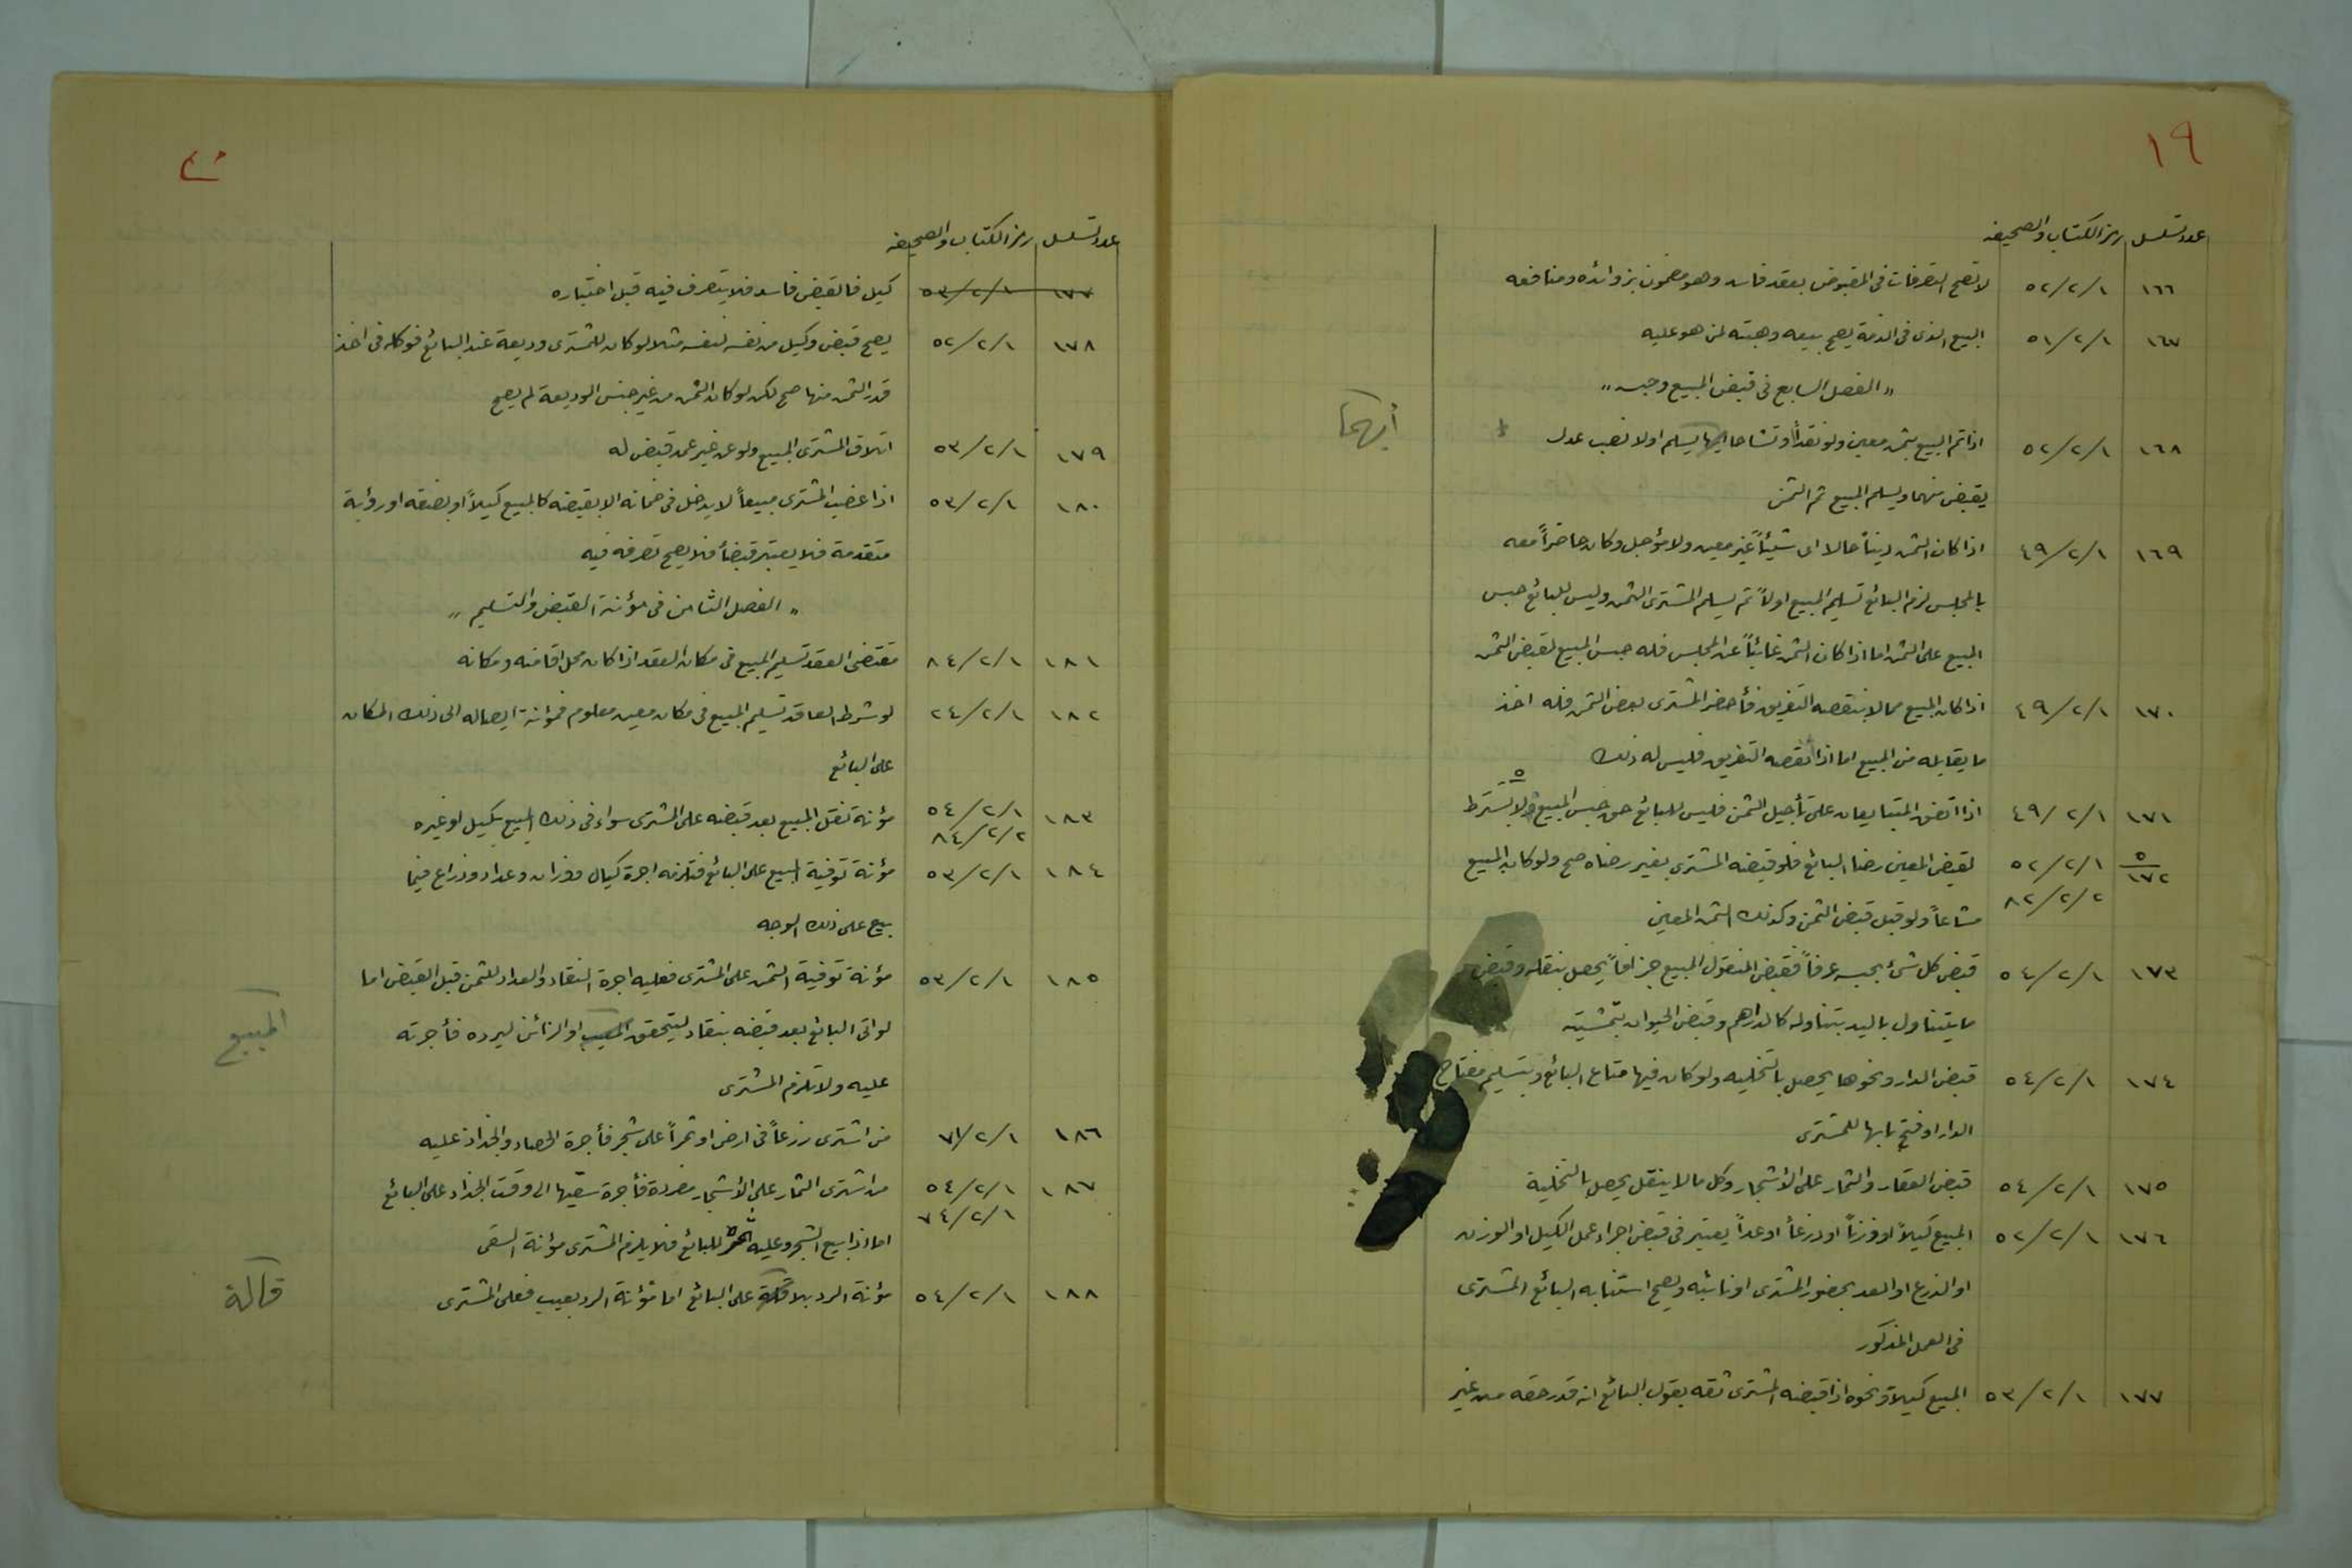 ١٩
عدد تسلسل رمز الكتاب والصحيفه
١٦٦ ٥٢/٢/١ لا تصح التصرفات فى المقبوض بعقد فاسد وهو مضمون بزوائده ومنافعه
١٦٧ ٥١/٢/١ المبيع الذى فى الذمة يصح بيعه وهبته لمن هو عليه
" الفصل السابع فى قبض المبيع وحبسه "
١٦٨ ٥٢/٢/١ اذا تم البيع بثمن معين ولو نقداً وتشاحا ايهما يسلم اولا نصب عدل
أيهما
يقبض منهما ويسلم المبيع ثم الثمن
١٦٩ ٤٩/٢/١ اذا كان الثمن ديناً حالا اى شيئاً غير معين ولا مؤجل وكان حاضراً معه
بالمجلس لزم البائع تسليم المبيع اولاً ثم يسلم المشترى الثمن وليس للبائع حبس
المبيع على الثمن اما اذا كان الثمن غائباً عن المجلس فله حبس المبيع لقبض الثمن
١٧٠ ٤٩/٢/١ اذا كان المبيع مما لا ينقصه التفريق فأحضر المشترى بعض الثمن فله اخذ
ما يقابله من المبيع اما اذا نقصه التفريق فليس له ذلك
١٧١ ٤٩/٢/١ اذا اتفق المتبايعان على تأجيل الثمن فليس للبائع حق حبس المبيع ٥ ولا يشترط
٥ ١٧٢ ٥٢/٢/١ لقبض المعين رضا البائع فلو قبضه المشترى بغير رضاه صح ولو كان المبيع
٨٢/٢/٢ مشاعاً ولو قبل قبض الثمن وكذلك الثمن المعين
١٧٣ ٥٤/٢/١ قبض كل شئ بحسبه عرفاً فقبض المنقول المبيع جزافاً يحصل بنقله وقبض
ما يتناول باليد بتناوله كالدراهم وقبض الحيوان بتمشيته
١٧٤ ٥٤/٢/١ قبض الدار ونحوها يحصل بالتخليه ولو كان فيها متاع البائع وبتسليم مفتاح
الدار او فتح بابها للمشترى
١٧٥ ٥٤/٢/١ قبض العقار والثمار على الأشجار وكل ما لا ينقل يحصل بالتخلية
١٧٦ ٥٢/٢/١ المبيع كيلاً او وزناً او ذرعاً او عداً يعتبر فى قبض اجراء عمل الكيل او الوزن
او الذرع او العد بحضور المشترى او نائبه ويصح استنابه البائع المشترى
فى العمل المذكور
١٧٧ ٥٣/٢/١ المبيع كيلا ونحوه اذا قبضه المشترى ثقه بقول البائع انه قدر حقه من غير
٢٠
عدد تسلسل رمز الكتاب والصحيفه
١٧٧ ٥٣/٢/١ كيل فالقبض فاسد فلا يتصرف فيه قبل اختباره
١٧٨ ٥٢/٢/١ يصح قبض وكيل من نفسه لنفسه مثلا لو كان للمشترى وديعة عند البائع فوكله فى اخذ
قدر الثمن منها صح لكن لو كان الثمن من غير جنس الوديعة لم يصح
١٧٩ ٥٣/٢/١ اتلاف المشترى المبيع ولو عن غير عمد قبض له
١٨٠ ٥٣/٢/١ اذا غصب المشترى مبيعاً لا يدخل فى ضمانه الا بقبضه كالمبيع كيلاً او بصفة او رؤية
متقدمة فلا يعتبر قبضاً فلا يصح تصرفه فيه
" الفصل الثامن فى مؤنة القبض والتسليم "
١٨١ ٨٤/٢/١ مقتضى العقد تسليم المبيع فى مكان العقد اذا كان محل اقامته ومكانه
١٨٢ ٢٤/٢/١ لو شرط العاقد تسليم المبيع فى مكان معين معلوم فمؤنة ايصاله الى ذلك المكان
على البائع
١٨٣ ٥٤/٢/١ مؤنة نقل المبيع بعد قبضه على المشترى سواء فى ذلك المبيع بكيل او غيره
٨٤/٢/٢
١٨٤ ٥٣/٢/١ مؤنة توفية المبيع على البائع فتلزمه اجرة كيال ووزان وعداد وذراع فيما
بيع على ذلك الوجه
١٨٥ ٥٣/٢/١ مؤنة توفية الثمن على المشترى فعليه اجرة النقاد والعداد للثمن قبل القبض اما
لو اتى البائع بعد قبضه بنقاد ليتحقق المعيب او الزائف ليرده فأجرته
المبيع
عليه ولا تلزم المشترى
١٨٦ ٧١/٢/١ من اشترى زرعاً فى ارض او ثمراً على شجر فأجرة الحصاد والجذاذ عليه
١٨٧ ٥٤/٢/١ من اشترى الثمار على الأشجار مفردة فأجرة سقيها الى وقت الجذاذ على البائع
٧٤/٢/١ اما اذا بيع الشجر وعليه ثمر للبائع فلا يلزم المشترى مؤنة السقى
١٨٨ ٥٤/٢/١ مؤنة الرد بلا قالة على البائع اما مؤنة الرد بعيب فعلى المشترى
قالة